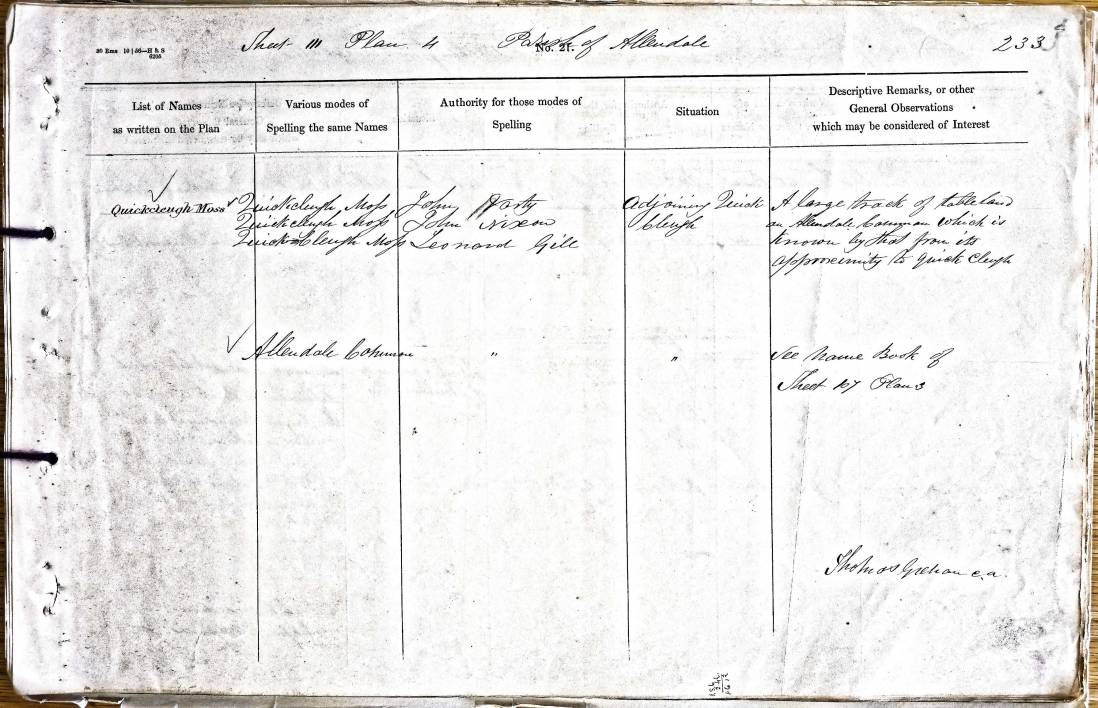 30 Ems 10 | 56—H & S
6205
Sheet 111 Plan 4 Parish of Allendale
No. 21.
233
List of Names
as written on the Plan
Various modes of
Spelling the same Names
Authority for those modes of
Spelling
Situation
Descriptive Remarks, or other
General Observations
which may be considered of Interest
Quickcleugh Moss
Quickcleugh Moss
Quickcleugh Moss
Quick Cleugh Moss
John
John Nixon
Leonard Gill
Adjoining Quick
Cleugh
A large track of tableland
on Allendale Common which is
known by that from its
approximity to Quick Cleugh
Allendale Common
"
"
See Name Book of
Sheet 107 Plan 3
Thomas c.a.